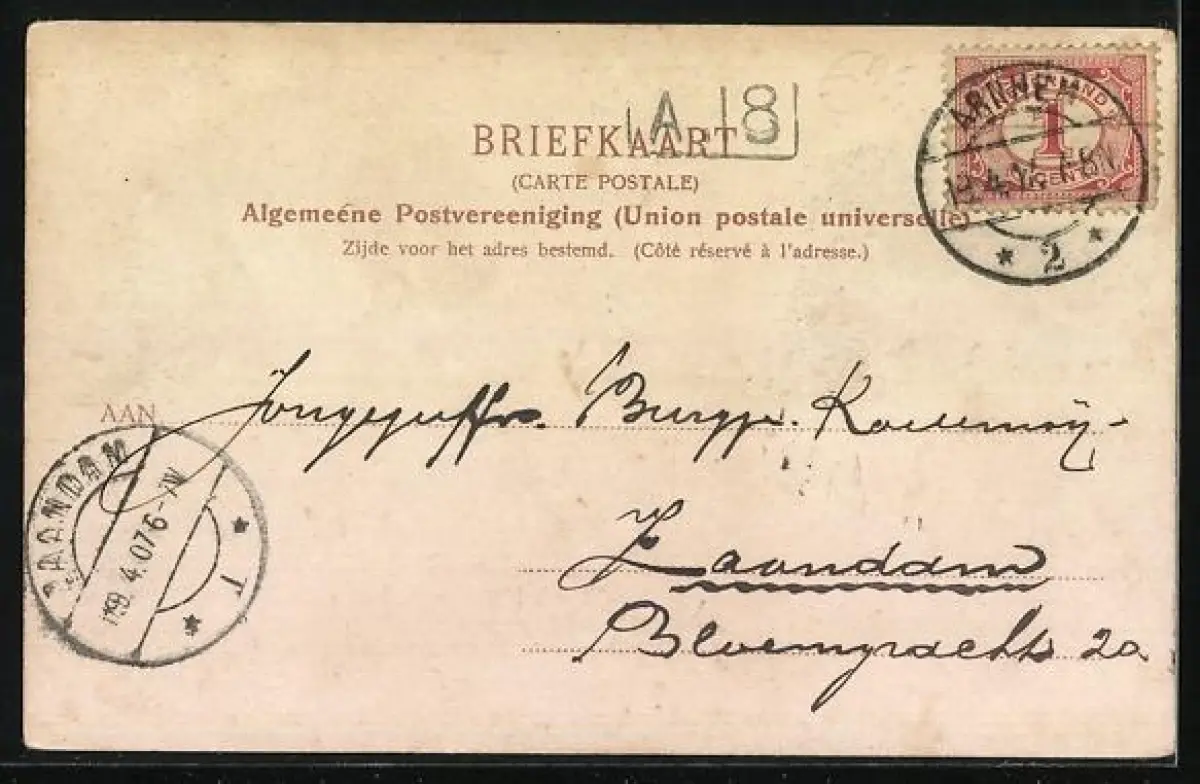 A. 8
NEDERLAND
1
ARNHEM
BRIEFKAART
(CARTE POSTALE)
Algemeene Postvereeniging (Union postale universelle)
Zijde voor het adres bestemd. (Côté réservé à l'adresse.)
2
AAN
Jongejuffr. Burgp.
ZAANDAM
19. 4. 07 6-
1
Zaandam
Bloemgracht 2a